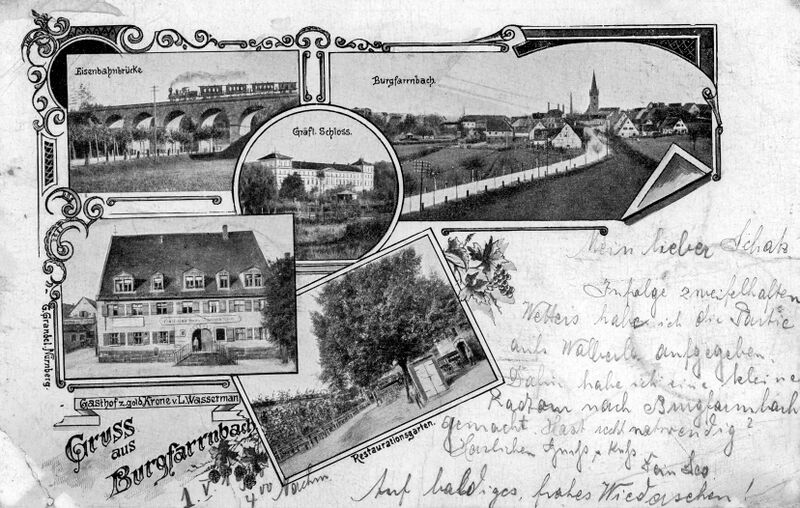 Eisenbahnbrücke
Burgfarrnbach.
Gräfl. Schloss.
G. Grandel, Nürnberg.
Gasthof z. gold. Krone v. L. Wasserman
Restaurationsgarten.
Gruss
aus
Burgfarrnbach
Mein lieber Schatz
Infolge zweifelhaften
Wetters habe ich die Partie
aufs Walberla aufgegeben.
Dafür habe ich eine kleine
Radtour nach Burgfarrnbach
gemacht. Hast recht notwendig?
Herzlichen Gruß u. Kuß
Dein Leo
Auf baldiges, frohes Wiedersehen!
1. V.
4 00 Nachm